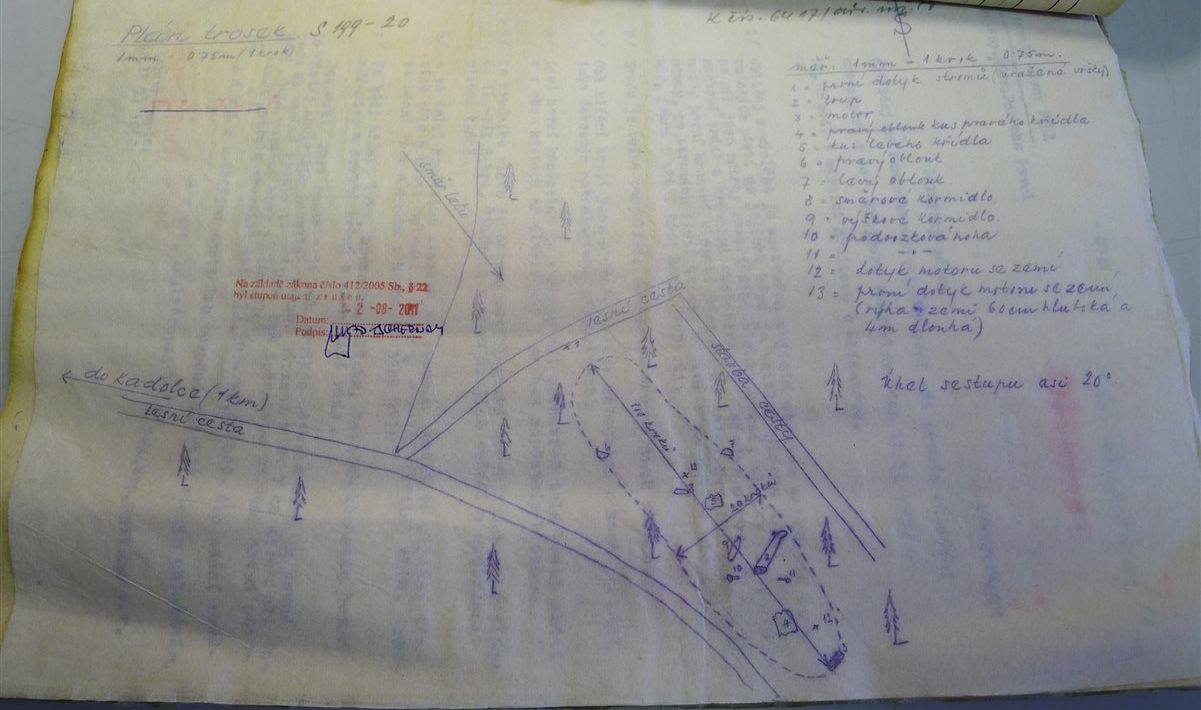 Plán trosek S 199-20
1mm = 0.75m (1 krok)
K čís. 6417/
měř. 1mm = 1 krok = 0.75m.
1 = první dotyk stromů (uražené vršky)
2 = trup
3 = motor
4 = pravý oblouk kus pravého křídla
5 = kus levého křídla
6 = pravý oblouk
7 = levý oblouk
8 = směrové kormidlo
9 = výškové kormidlo.
10 = podvozková noha
11 = -"-
12 = dotyk motoru se zemí
13 = první dotyk motoru se zemí
(rýha v zemi 60cm hluboká a
4m dlouhá)
Úhel sestupu asi 20°
směr letu
Na základě zákona číslo 412/2005 Sb., § 22
byl stupeň utajení z r u š e n.
Datum: 2 -08- 2011
Podpis:
lesní cesta
stavba cesty
do Kadolce (1 km)
lesní cesta
110 kroků
20 kroků
4
12